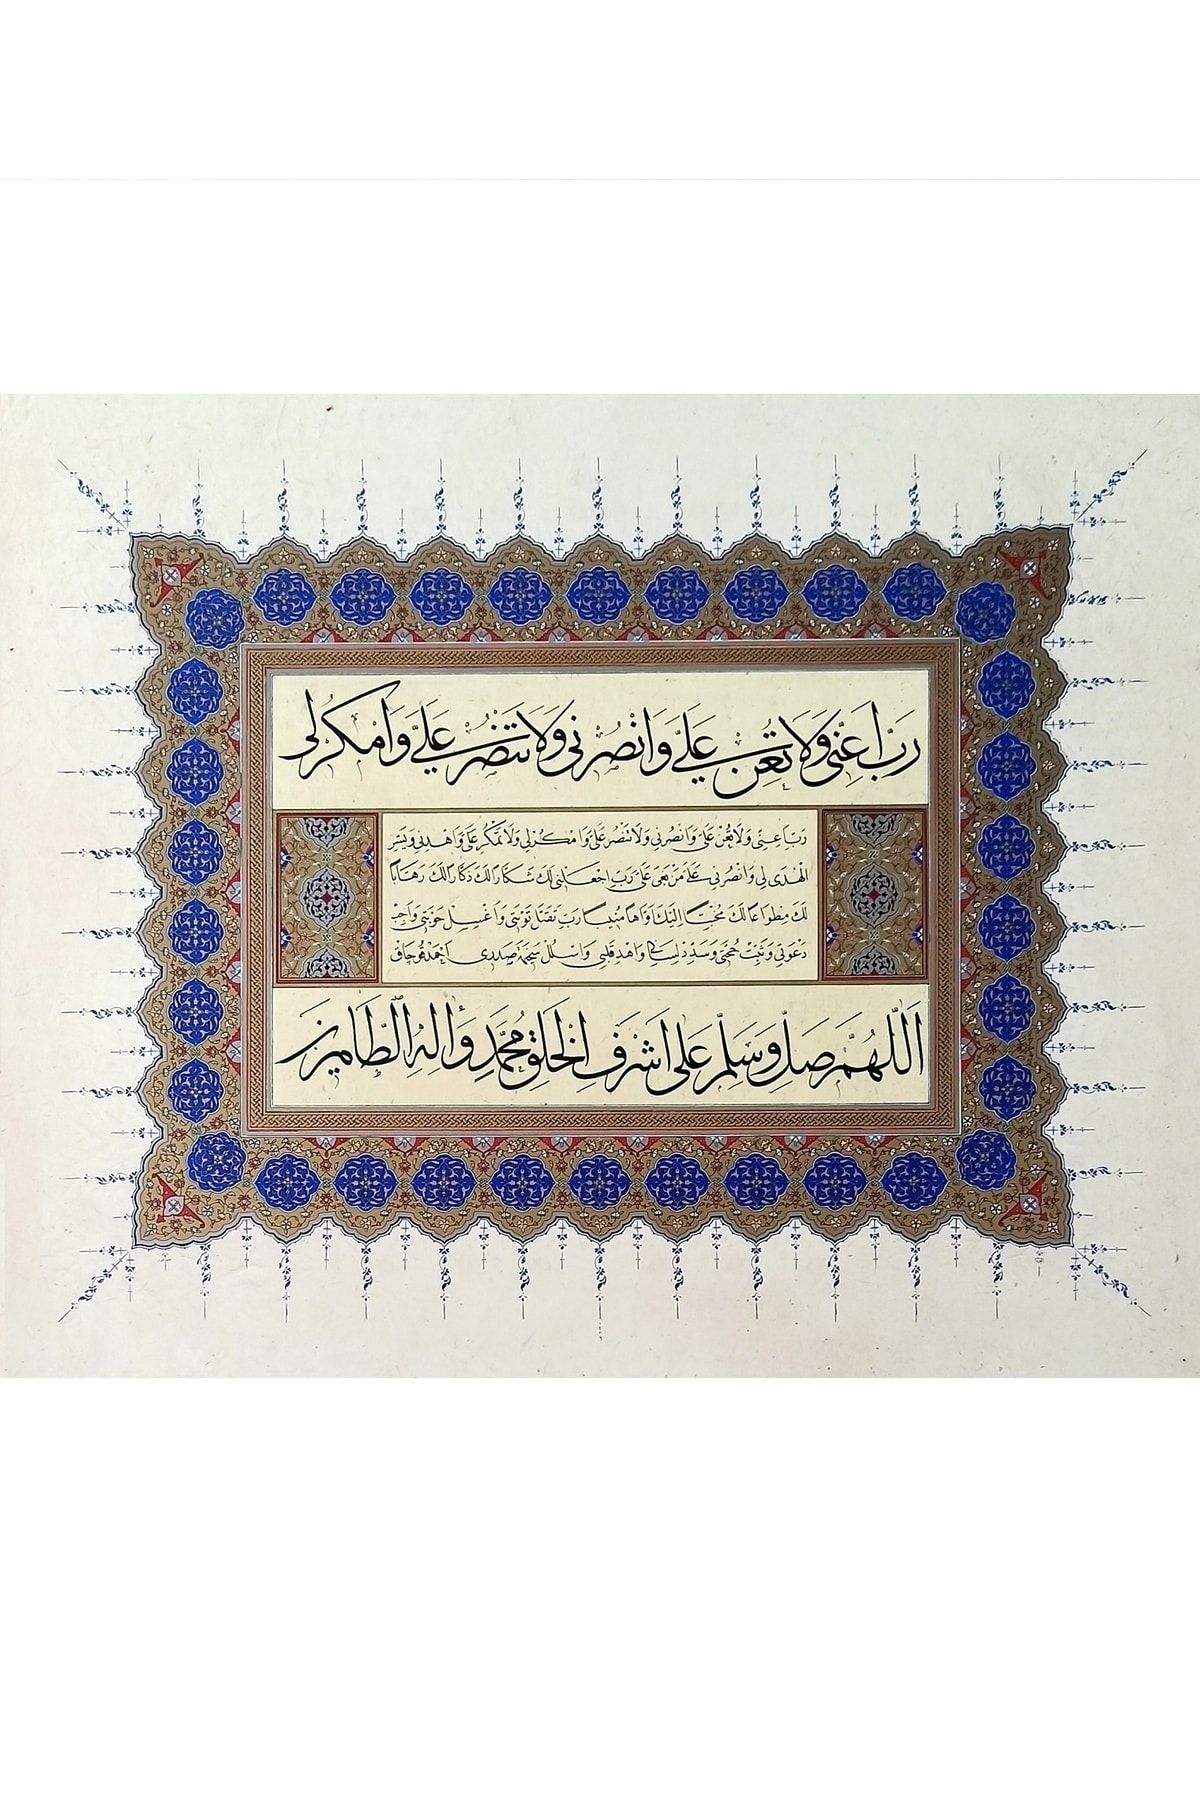 رَبِّ اَعِنّي وَلَا تُعِنْ عَلَيَّ وَانْصُرْنی وَلَا تَنْصُرْ عَلَیَّ وَامْكُرْلی
رَبِّ اَعِنّي وَلَا تُعِنْ عَلَيَّ وَانْصُرْني وَلَا تَنْصُرْ عَلَيَّ وَامْكُرْلي وَلَا تَمْكُرْ عَلَيَّ وَاهْدِني وَيَسِّرِ
الْهُدَى لي وَانْصُرْني عَلَى مَنْ بَغَى عَلَيَّ رَبِّ اجْعَلْني لَكَ شَكَّارًا لَكَ ذَكَّارًا لَكَ رَهَّابًا
لَكَ مِطْوَاعًا لَكَ مُخْبِتًا اِلَيْكَ اَوَّاهًا مُنيبًا رَبِّ تَقَبَّلْ تَوْبَتي وَاغْسِلْ حَوْبَتي وَاَجِبْ
دَعْوَتي وَثَبِّتْ حُجَّتي وَسَدِّدْ لِسَاني وَاهْدِ قَلْبي وَاسْلُلْ سَخيمَةَ صَدْري
اَللّٰهُمَّ صَلِّ وَسَلِّمْ عَلَى اَشْرَفِ الْخَلْقِ مُحَمَّدٍ وَاٰلِهِ الطَّاهِرينَ